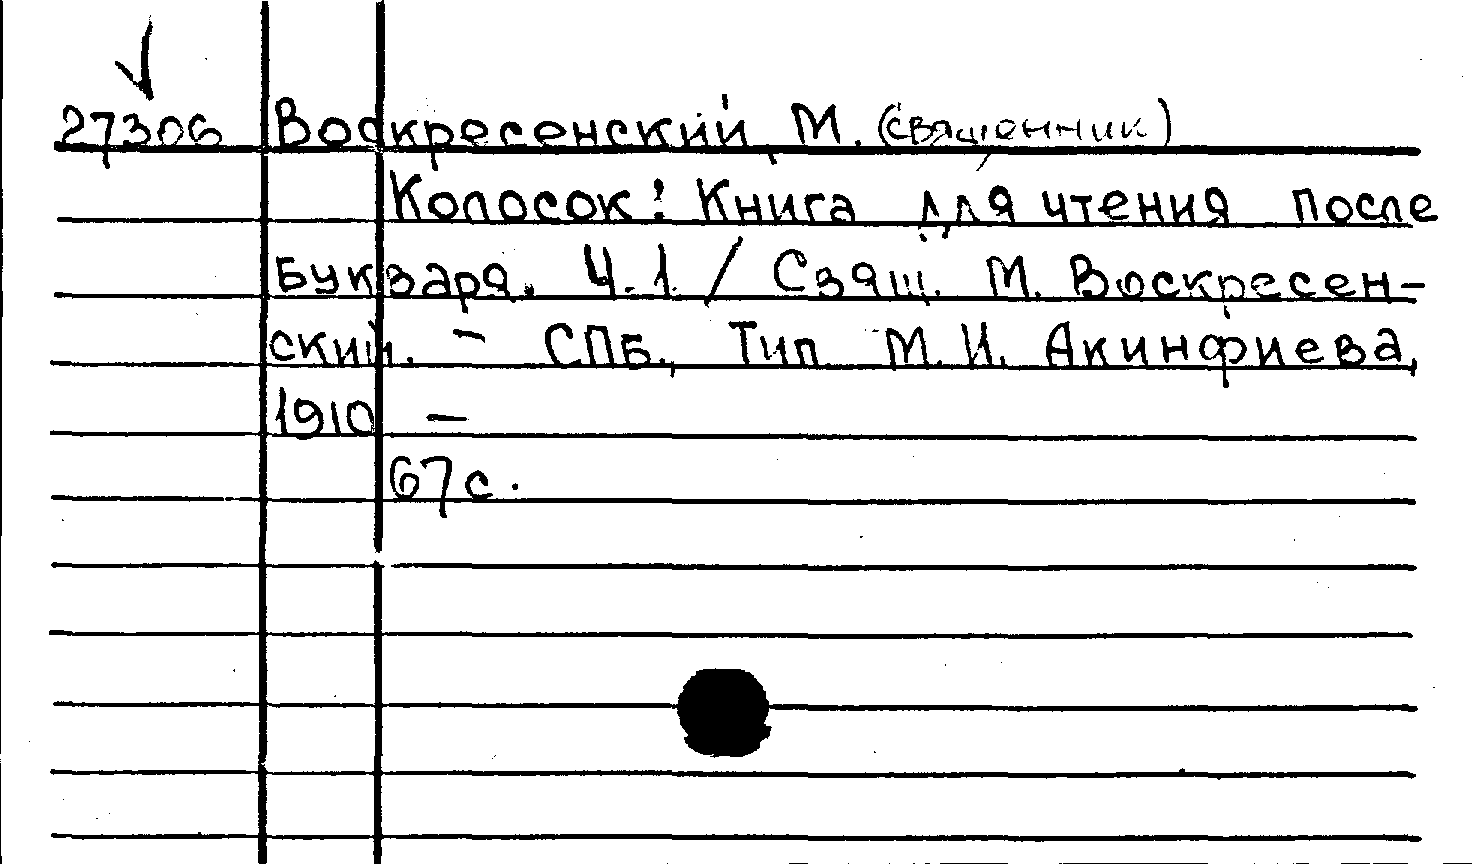 27306 Воскресенский, М. (священник)
Колосок: Книга для чтения после
Букваря. Ч.1 / Свящ. М. Воскресен-
ский. - СПБ., Тип М.И. Акинфиева,
1910 -
67с.